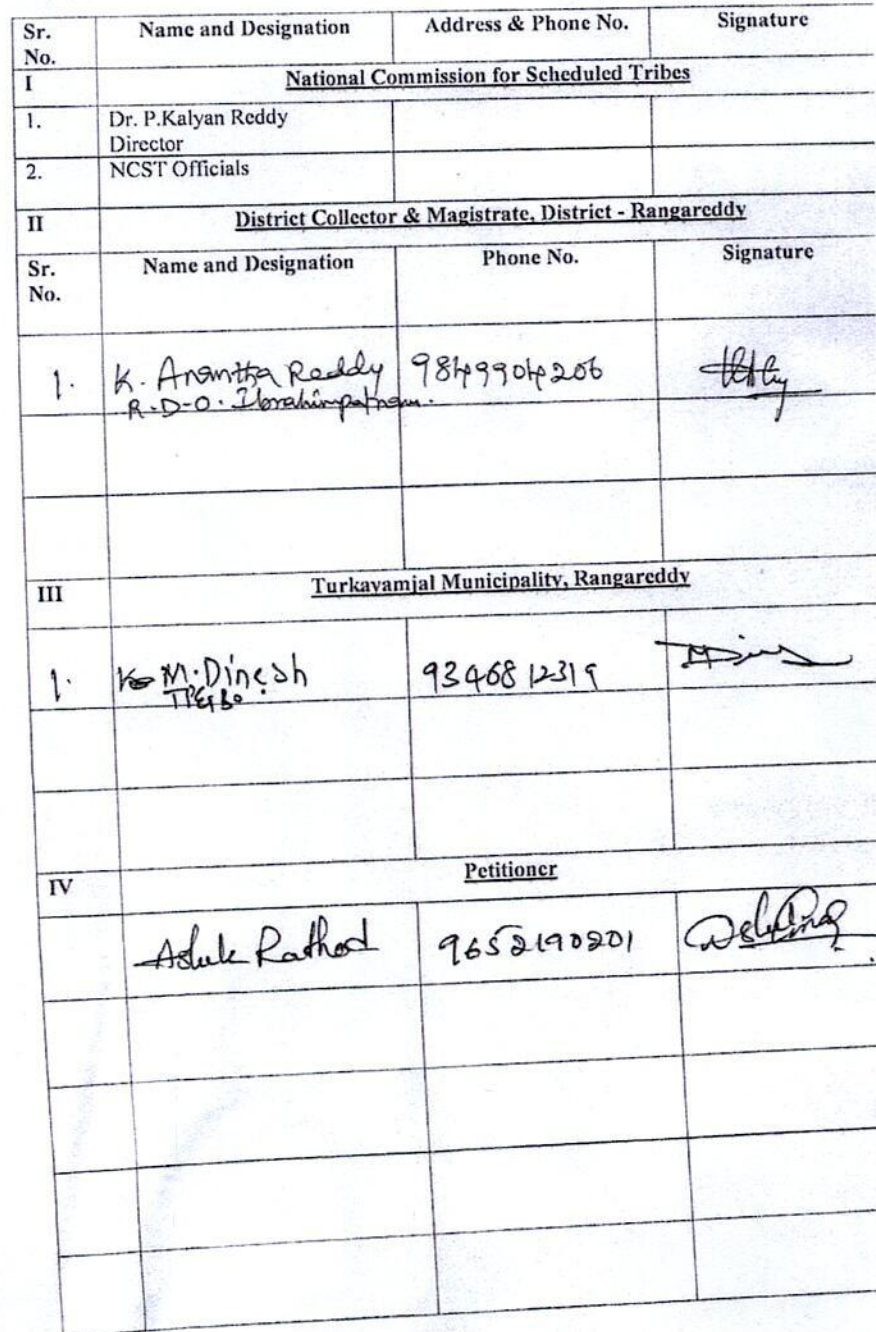 Sr. No. Name and Designation Address & Phone No. Signature
I National Commission for Scheduled Tribes
1. Dr. P.Kalyan Reddy
Director
2. NCST Officials
II District Collector & Magistrate, District - Rangareddy
Sr. No. Name and Designation Phone No. Signature
1. K. Anantha Reddy 9849904206
R.D.O. Ibrahimpatnam.
III Turkayamjal Municipality, Rangareddy
1. M. Dinesh 9346812319
IV Petitioner
Ashok Rathod 9652190201